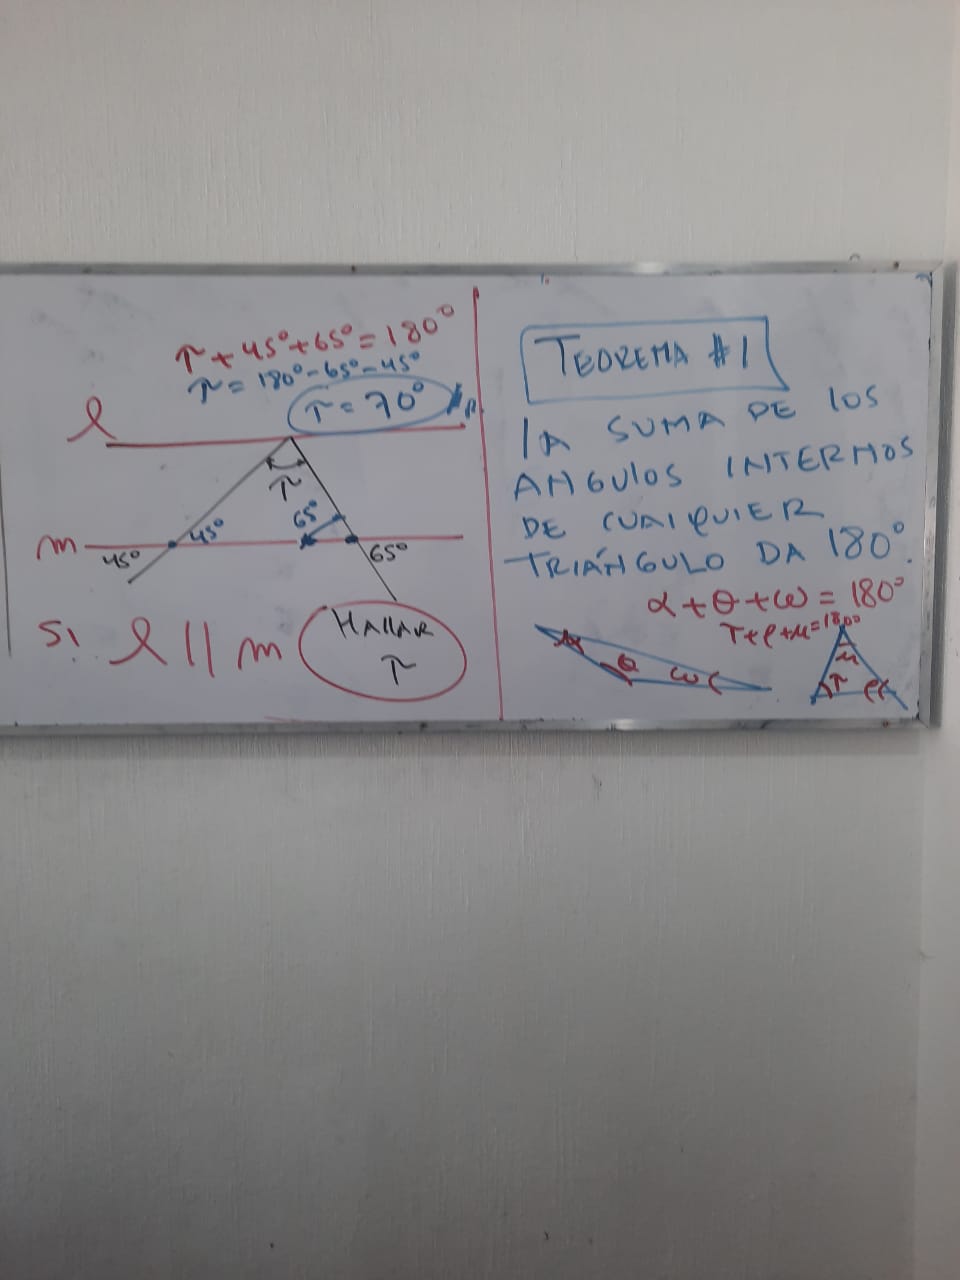 τ + 45° + 65° = 180°
τ = 180° - 65° - 45°
τ = 70°
l
τ
65°
45°
m
45°
65°
Si l || m
HAllAR
τ
TEOREMA #1
lA SUMA DE lOS
ANGUlOS INTERNOS
DE CUAlQUIER
TRIÁNGULO DA 180°.
α + θ + ω = 180°
τ + ρ + μ = 180°
α
θ
ω
μ
τ
ρ